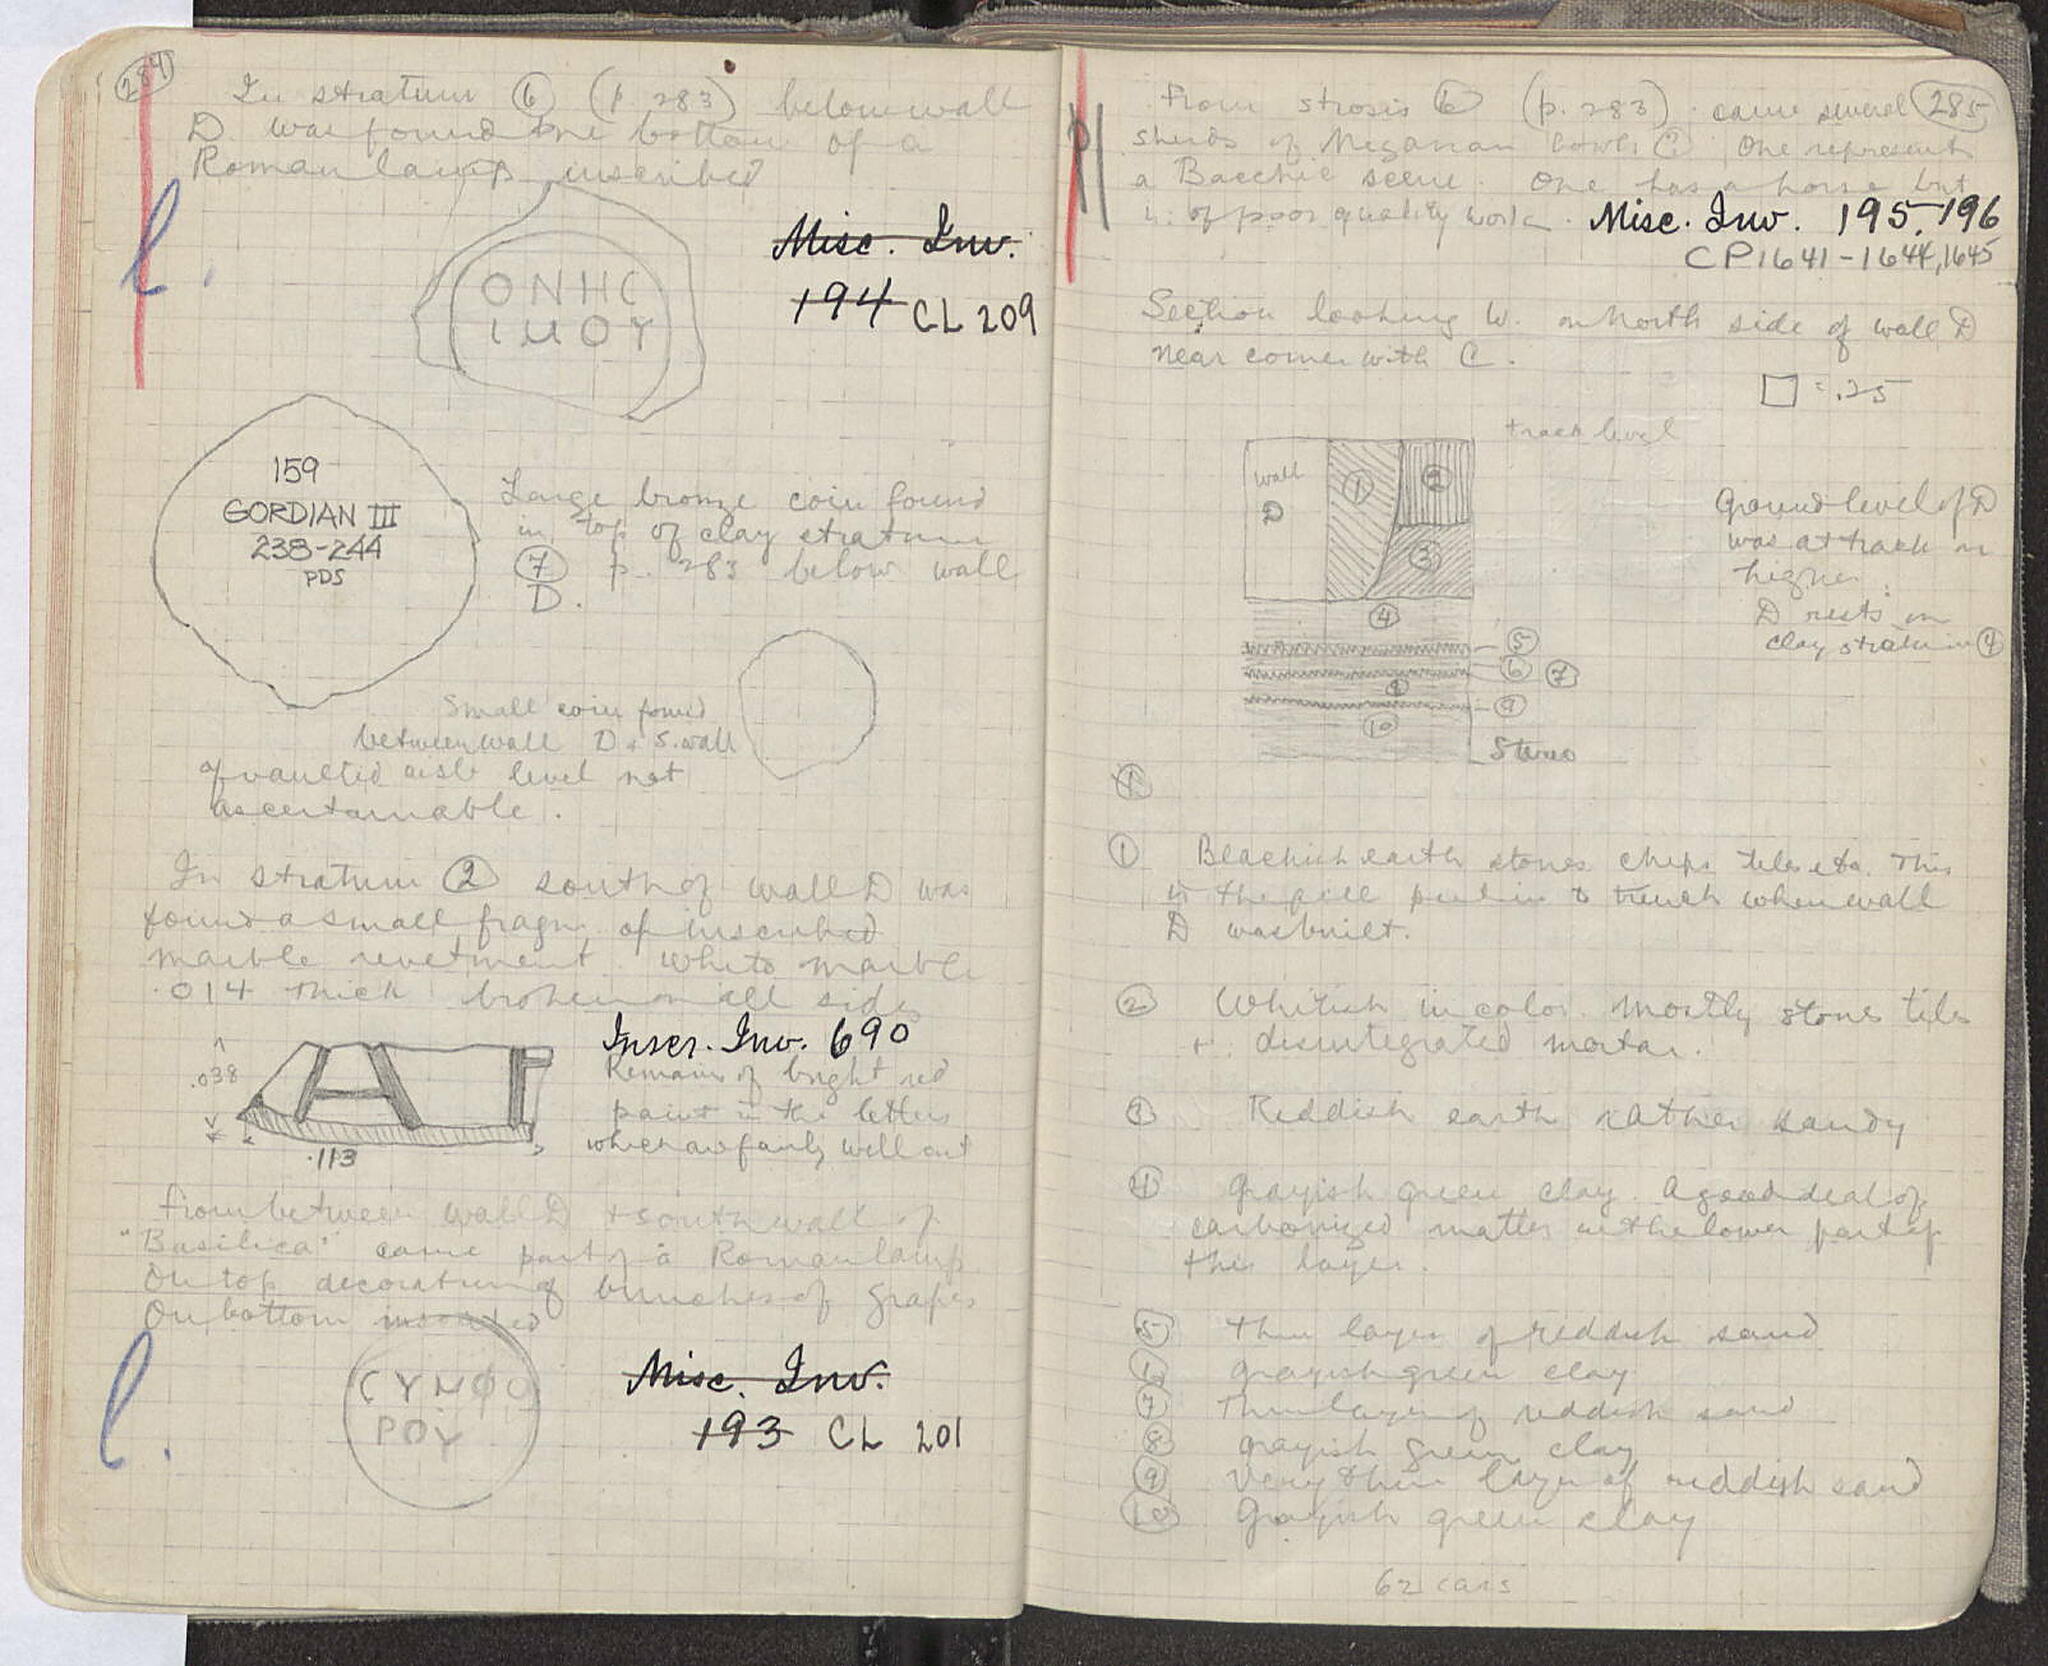 284
In stratum 6 (p. 283) below wall
D was found the bottom of a
Roman lamp inscribed
l.
ONHC
IMOY
Misc. Inv.
194 CL 209
159
GORDIAN III
238-244
PDS
Large bronze coin found
in top of clay stratum
7 p. 283 below wall
D.
Small coin found
between wall D + S. wall
of vaulted aisle level not
ascertainable.
In stratum 2 south of wall D was
found a small fragm. of inscribed
marble revetment. White marble
.014 thick broken on all sides
Inscr. Inv. 690
.038
.113
Remains of bright red
paint in the letters
which are fairly well cut
From between wall D + south wall of
"Basilica" came part of a Roman lamp.
On top decoration of bunches of grapes
On bottom inscribed
l.
CYMΦO
POY
Misc. Inv.
193 CL 201
285
From strosis 6 (p. 283) came several
sherds of Megarian bowls (?) One represents
a Bacchic scene. One has a horse but
is of poor quality work. Misc. Inv. 195, 196
CP1641-1644, 1645
Section looking W. on North side of wall D
near corner with C.
□ = .25
track level
wall
D
1
2
3
4
5
6
7
8
9
10
Stereo
Ground level of D
was at track or
higher.
D rests on
clay stratum 4
1
1 Blackish earth stones chips tiles etc. This
is the fill put in to trench when wall
D was built.
2 Whitish in color. Mostly stones tiles
+ disintegrated mortar.
3 Reddish earth rather sandy
4 Grayish green clay. A good deal of
carbonized matter in the lower part of
this layer.
5 Thin layer of reddish sand
6 Grayish green clay
7 Thin layer of reddish sand
8 Grayish green clay
9 Very thin layer of reddish sand
10 Grayish green clay
62 cars